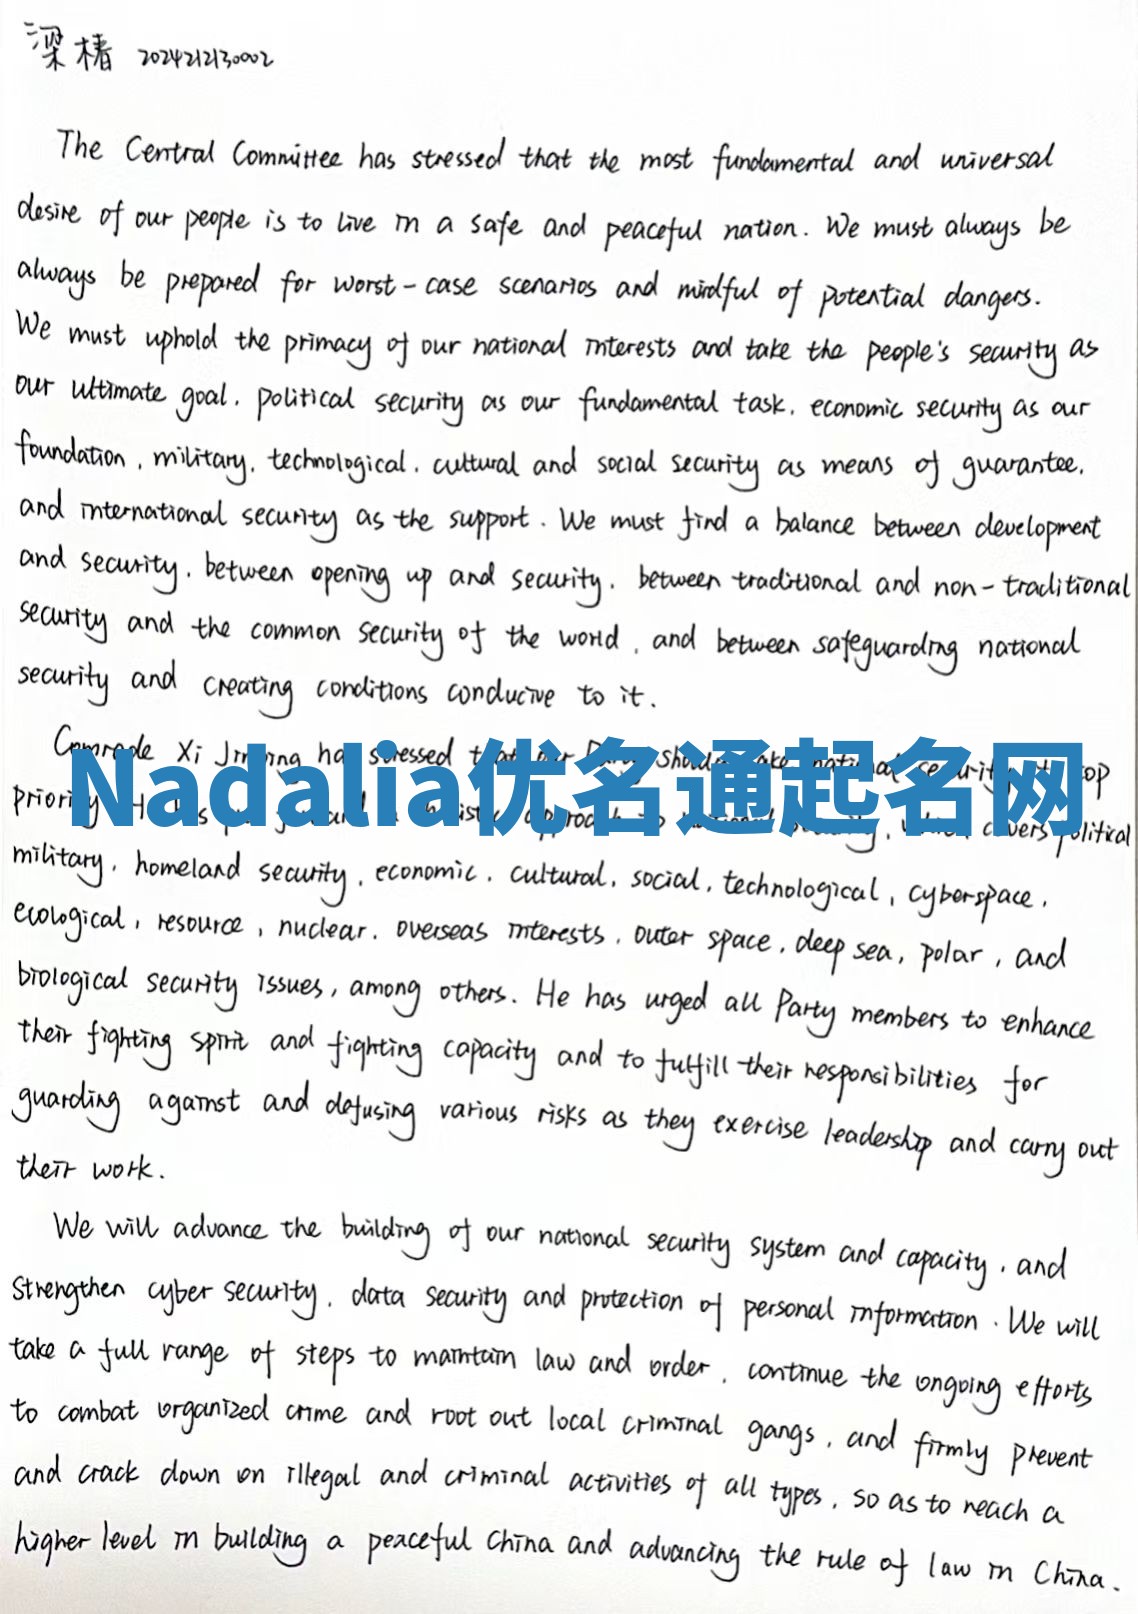 梁椿 2024212130002
The Central Committee has stressed that the most fundamental and universal
desire of our people is to live in a safe and peaceful nation. We must always be
always be prepared for worst-case scenarios and mindful of potential dangers.
We must uphold the primacy of our national interests and take the people's security as
our ultimate goal, political security as our fundamental task, economic security as our
foundation, military, technological, cultural and social security as means of guarantee,
and international security as the support. We must find a balance between development
and security, between opening up and security, between traditional and non-traditional
security and the common security of the world, and between safeguarding national
security and creating conditions conducive to it.
Comrade Xi Jinping has stressed that our Party should take national security
Nadalia优名通起名网
priority covers political
military, homeland security, economic, cultural, social, technological, cyberspace,
ecological, resource, nuclear, overseas interests, outer space, deep sea, polar, and
biological security issues, among others. He has urged all Party members to enhance
their fighting spirit and fighting capacity and to fulfill their responsibilities for
guarding against and defusing various risks as they exercise leadership and carry out
their work.
We will advance the building of our national security system and capacity, and
strengthen cyber security, data security and protection of personal information. We will
take a full range of steps to maintain law and order, continue the ongoing efforts
to combat organized crime and root out local criminal gangs, and firmly prevent
and crack down on illegal and criminal activities of all types, so as to reach a
higher level in building a peaceful China and advancing the rule of law in China.